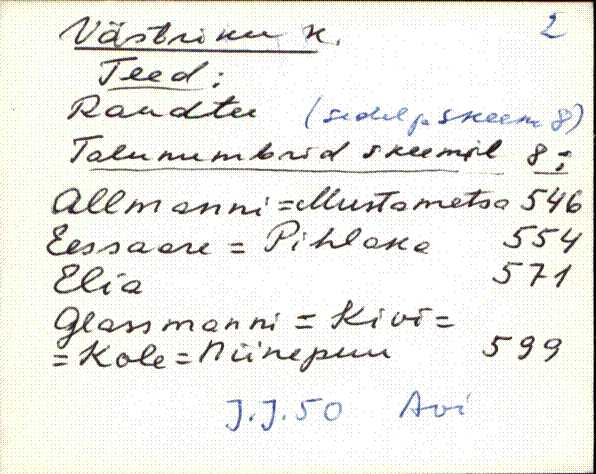 Västriku k. 2
Teed:
Raudtee (sedel ja skeem 8)
Talunumbrid skeemil 8:
Allmanni=Mustametsa 546
Eessaare = Pihlaka 554
Elia 571
Glassmanni = Kivi=
=Kole=Niinepuu 599
J.J.50 Avi